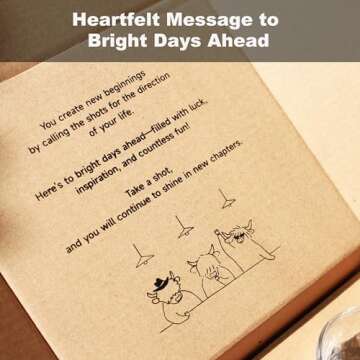 Heartfelt Message to
Bright Days Ahead
You create new beginnings
by calling the shots for the direction
of your life.
Here's to bright days ahead—filled with luck,
inspiration, and countless fun!
Take a shot,
and you will continue to shine in new chapters.